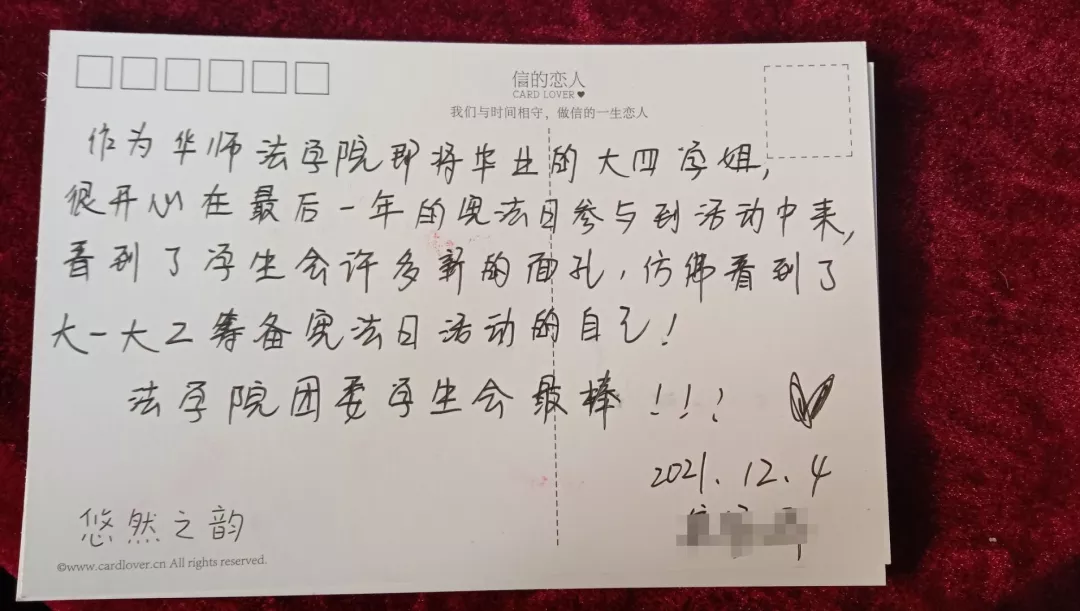 信的恋人
CARD LOVER
我们与时间相守，做信的一生恋人
作为华师法学院即将毕业的大四学姐，
很开心在最后一年的宪法日参与到活动中来，
看到了学生会许多新的面孔，仿佛看到了
大一大二筹备宪法日活动的自己！
法学院团委学生会最棒！！！
2021.12.4
悠然之韵
©www.cardlover.cn All rights reserved.